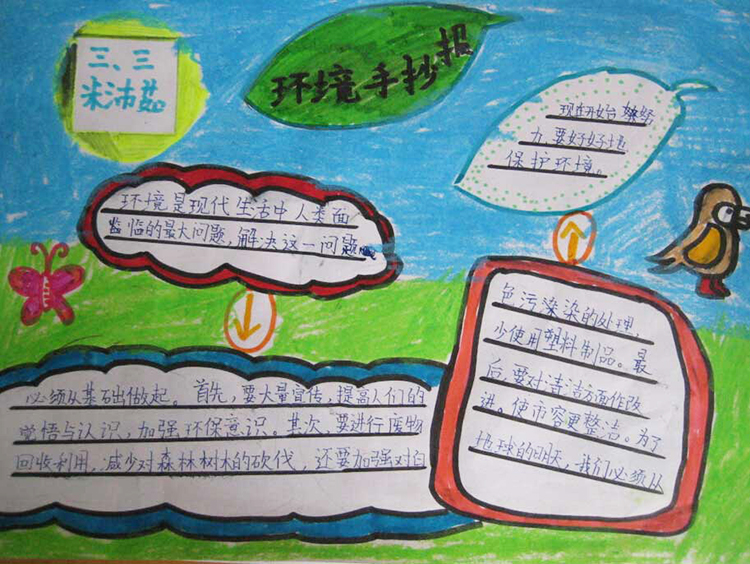 三、三
米沛茹
环境手抄报
环境是现代生活中人类面
监临的最大问题,解决这一问题
必须从基础做起。首先,要大量宣传,提高人们的
觉悟与认识,加强环保意识。其次,要进行废物
回收利用,减少对森林树木的砍伐,还要加强对白
色污染染的处理,
少使用塑料制品。最
后,要对清洁方面作改
进。使市容更整洁。为了
地球的明天,我们必须从
现在开始努
力要好好地
保护环境。